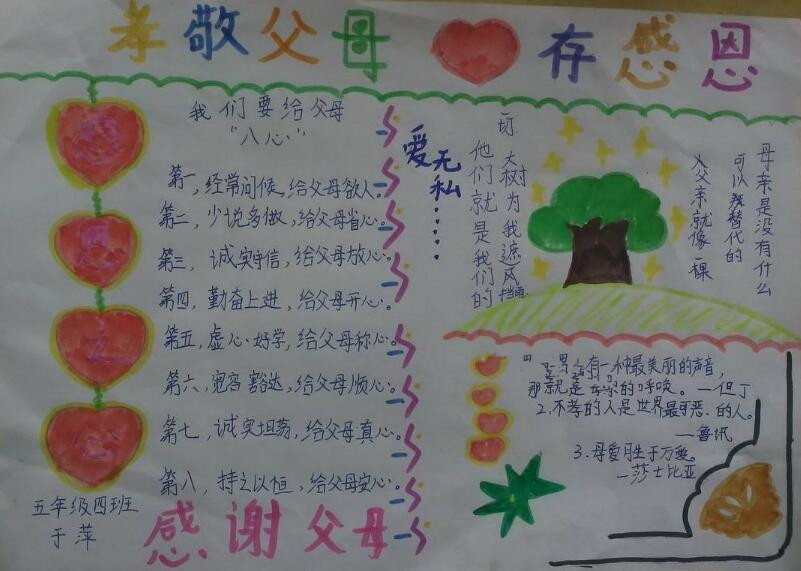 孝敬父母 存感恩
我们要给父母
"八心"
第一,经常问候,给父母欲人。
第二,少说多做,给父母省心。
第三,诚实守信,给父母放心。
第四,勤奋上进,给父母开心。
第五,虚心好学,给父母称心。
第六,宽容豁达,给父母顺心。
第七,诚实坦荡,给父母真心。
第八,持之以恒,给父母安心。
五年级四班
于萍
感谢父母
爱无私……
母亲是没有什么
可以替代的
父亲就像一棵
大树为我遮风挡雨
他们就是我们的
一切
世界上有一种最美丽的声音,
那就是母亲的呼唤。—但丁
2.不孝的人是世界最可恶的人。
—鲁讯
3.母爱胜于万爱。
—莎士比亚